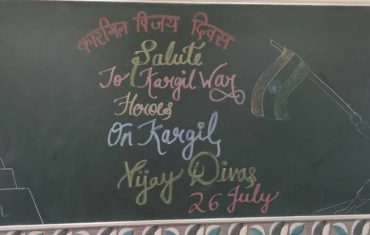 कारगिल विजय दिवस
Salute
To Kargil War
Heroes
On Kargil
Vijay Divas
26 July